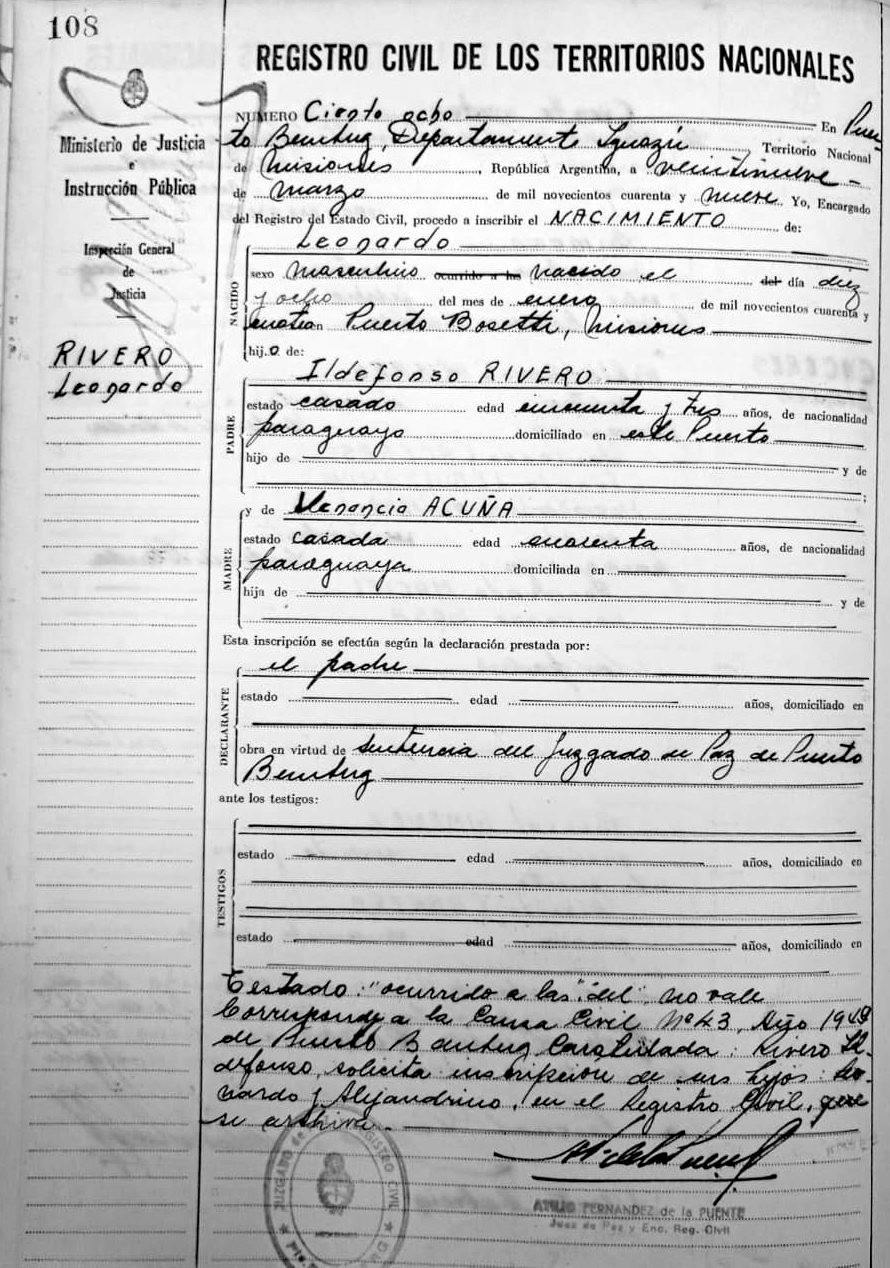 108
REGISTRO CIVIL DE LOS TERRITORIOS NACIONALES
Ministerio de Justicia
e
Instrucción Pública
Inspección General
de
Justicia
RIVERO
Leonardo
NUMERO Ciento ocho En Puer-
to Bemberg, Departamento Iguazú, Territorio Nacional
de Misiones, República Argentina, a veintinueve
de marzo de mil novecientos cuarenta y nueve Yo, Encargado
del Registro del Estado Civil, procedo a inscribir el NACIMIENTO de:
Leonardo
NACIDO
sexo masculino ocurrido a las nacido el del día diez
y ocho del mes de enero de mil novecientos cuarenta y
en Puerto Bosetti, Misiones
hijo de:
Ildefonso RIVERO
PADRE
estado casado edad cincuenta y tres años, de nacionalidad
paraguayo domiciliado en este Puerto
hijo de y de
;
y de Venancia ACUÑA
MADRE
estado casada edad cuarenta años, de nacionalidad
paraguaya domiciliada en
hija de y de
Esta inscripción se efectúa según la declaración prestada por:
el padre
DECLARANTE
estado edad años, domiciliado en
obra en virtud de sentencia del Juzgado de Paz de Puerto
Bemberg
ante los testigos:
TESTIGOS
estado edad años, domiciliado en
estado edad años, domiciliado en
Testado: "ocurrido a las" "del" no vale
Corresponde a la Causa Civil Nº 43, Año 1948
de Puerto Bemberg Caratulada: Rivero Il-
defonso, solicita inscripción de sus hijos: Leo-
nardo y Alejandrino, en el Registro Civil, que
se archiva.
JUZGADO de REGISTRO CIVIL
ATILIO FERNANDEZ de la PUENTE
Juez de Paz y Enc. Reg. Civil